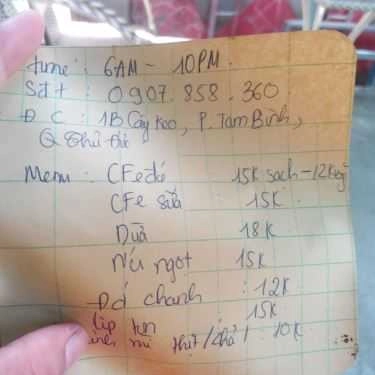 time : 6AM - 10PM.
Sđt : 0907.858.360
Đ C : 1B Cây Keo, P. Tam Bình,
Q Thủ Đức
Menu : CFe đá 15K sạch - 12K
CFe sữa 15K
Dừa 18K
Nc ngọt 15K
Đá chanh : 12K
lipton 15K
bánh mì thịt / chả / : 10K